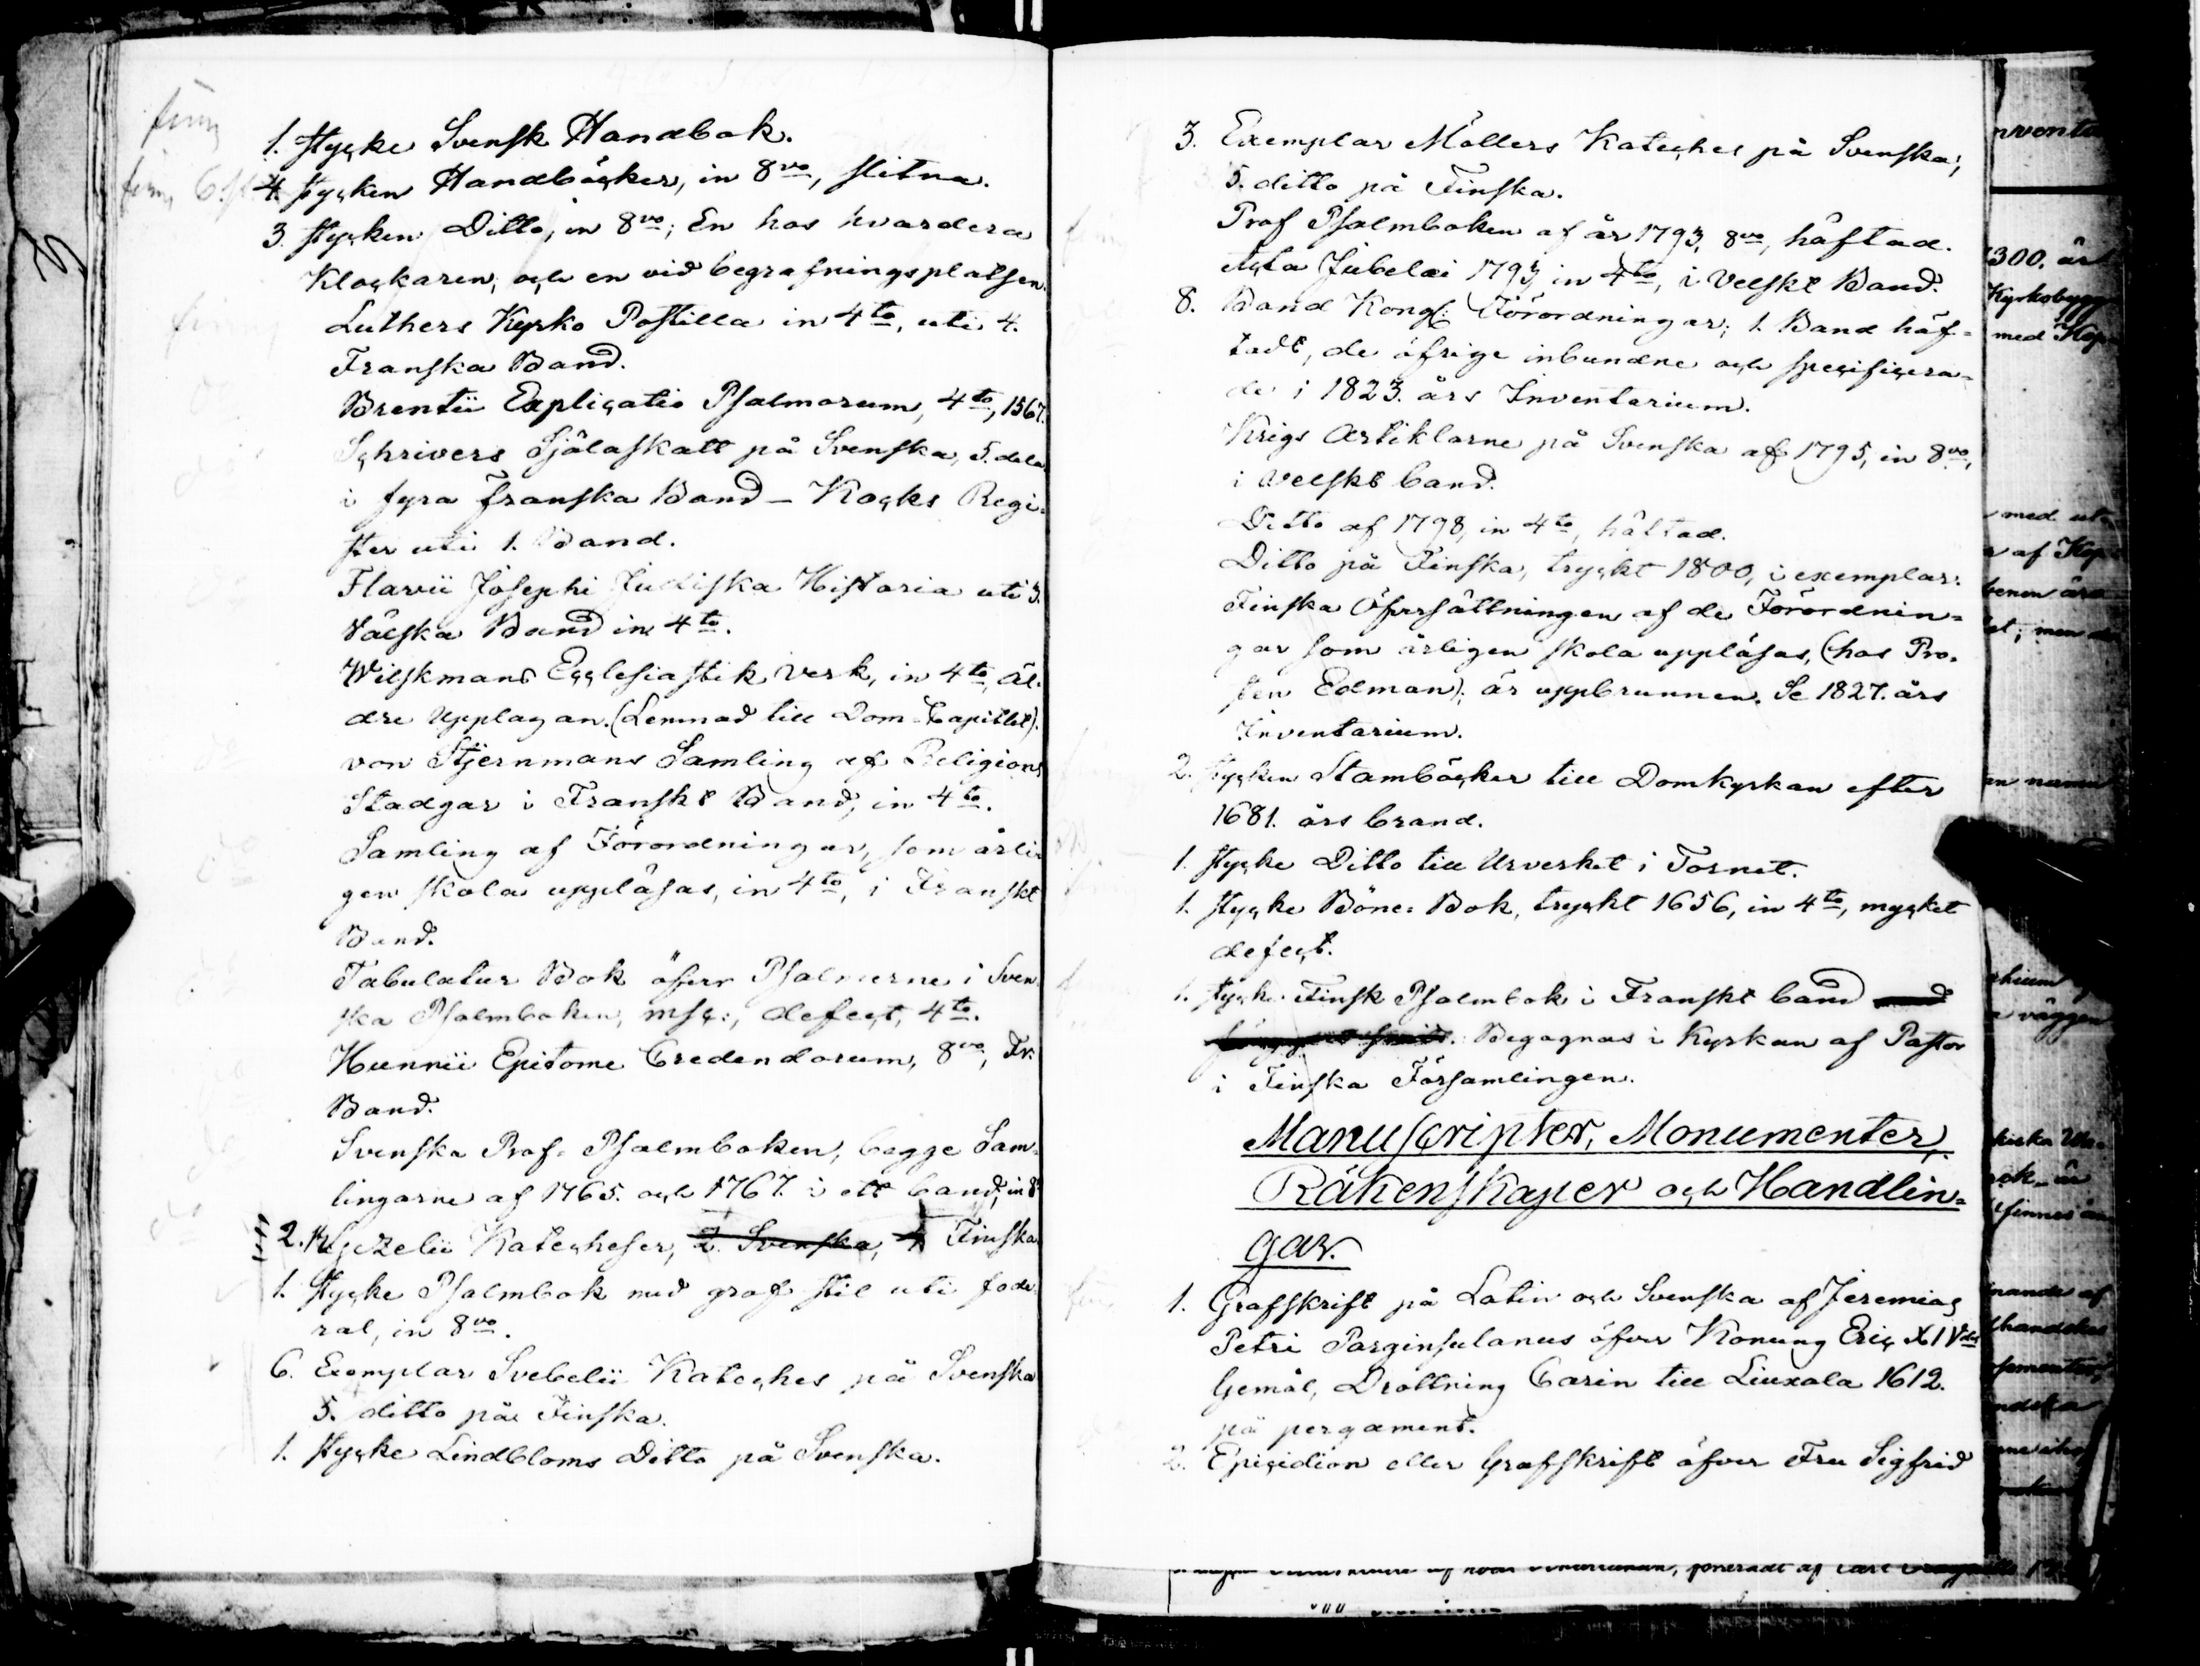 finns
1. stycke Svensk Handbok.
4. stycken Handböcker, in 8vo, slitna.
3. stycken Ditto, in 8vo; En hos hvardera
Klockaren, och en vid begrafningsplatsen.
Luthers Kyrko Postilla in 4to, uti 4.
Franska Band.
Brentii Explicatio Psalmorum, 4to, 1567.
Schrivers Själaskatt på Svenska, 5. delar
i fyra franska Band – Kocks Regi-
ster uti 1. Band.
Flavii Josephi Judiska Historia uti 3.
Välska Band in 4to.
Wilskmans Ecclesiastik Verk, in 4to, äl-
dre Upplagan. (Lemnad till Dom-Capitlet).
von Stjernmans Samling af Religions
Stadgar i Franskt Band, in 4to.
Samling af Förordningar, som årli-
gen skola uppläsas, in 4to, i Franskt
Band.
Tabulatur Bok öfver Psalmerne i Sven-
ska Psalmboken, msc:, defect, 4to.
Hunnii Epitome Credendorum, 8vo, Fr.
Band.
Svenska Prof-Psalmboken, begge Sam-
lingarne af 1765. och 1767. i ett band, in 8
2. st Gezelii Katecheser, 2. Svenska, 4 Finska
1. stycke Psalmbok med grof stil uti fode-
ral, in 8vo.
6. Exemplar Svebelii Kateches på Svenska
5. ditto på Finska.
1. stycke Lindbloms Ditto på Svenska.
3. Exemplar Möllers Kateches på Svenska;
5. ditto på Finska.
Prof Psalmboken af år 1793, 8vo, häftad.
Acta Jubelæi 1793 in 4to, i Velskt Band.
8. Band Kongl: Förordningar; 1. Band häf-
tadt, de öfrige inbundne och specificera-
de i 1823. års Inventarium.
Krigs Artiklarne på Svenska af 1795, in 8vo,
i Velskt band.
Ditto af 1798, in 4to, häftad.
Ditto på Finska, tryckt 1800, i exemplar.
Finska Öfversättningen af de Förordnin-
gar som årligen skola uppläsas, (hos Pro-
sten Edman); är uppbrunnen. Se 1827. års
Inventarium.
2. stycken Stamböcker till Domkyrkan efter
1681. års brand.
1. stycke Ditto till Urverket i Tornet.
1. stycke Böne-Bok, tryckt 1656, in 4to, mycket
defect.
1. stycke Finsk Psalmbok i Franskt band
Begagnas i Kyrkan af Pastor
i Finska Församlingen.
Manuscripter, Monumenter,
Räkenskaper och Handlin-
gar.
1. Grafskrift på Latin och Svenska af Jeremias
Petri Parginsulanus öfver Konung Eric XIVdes
Gemål, Drottning Carin till Liuxala 1612.
på pergament.
2. Epicidion eller Grafskrift öfver Fru Sigfrid